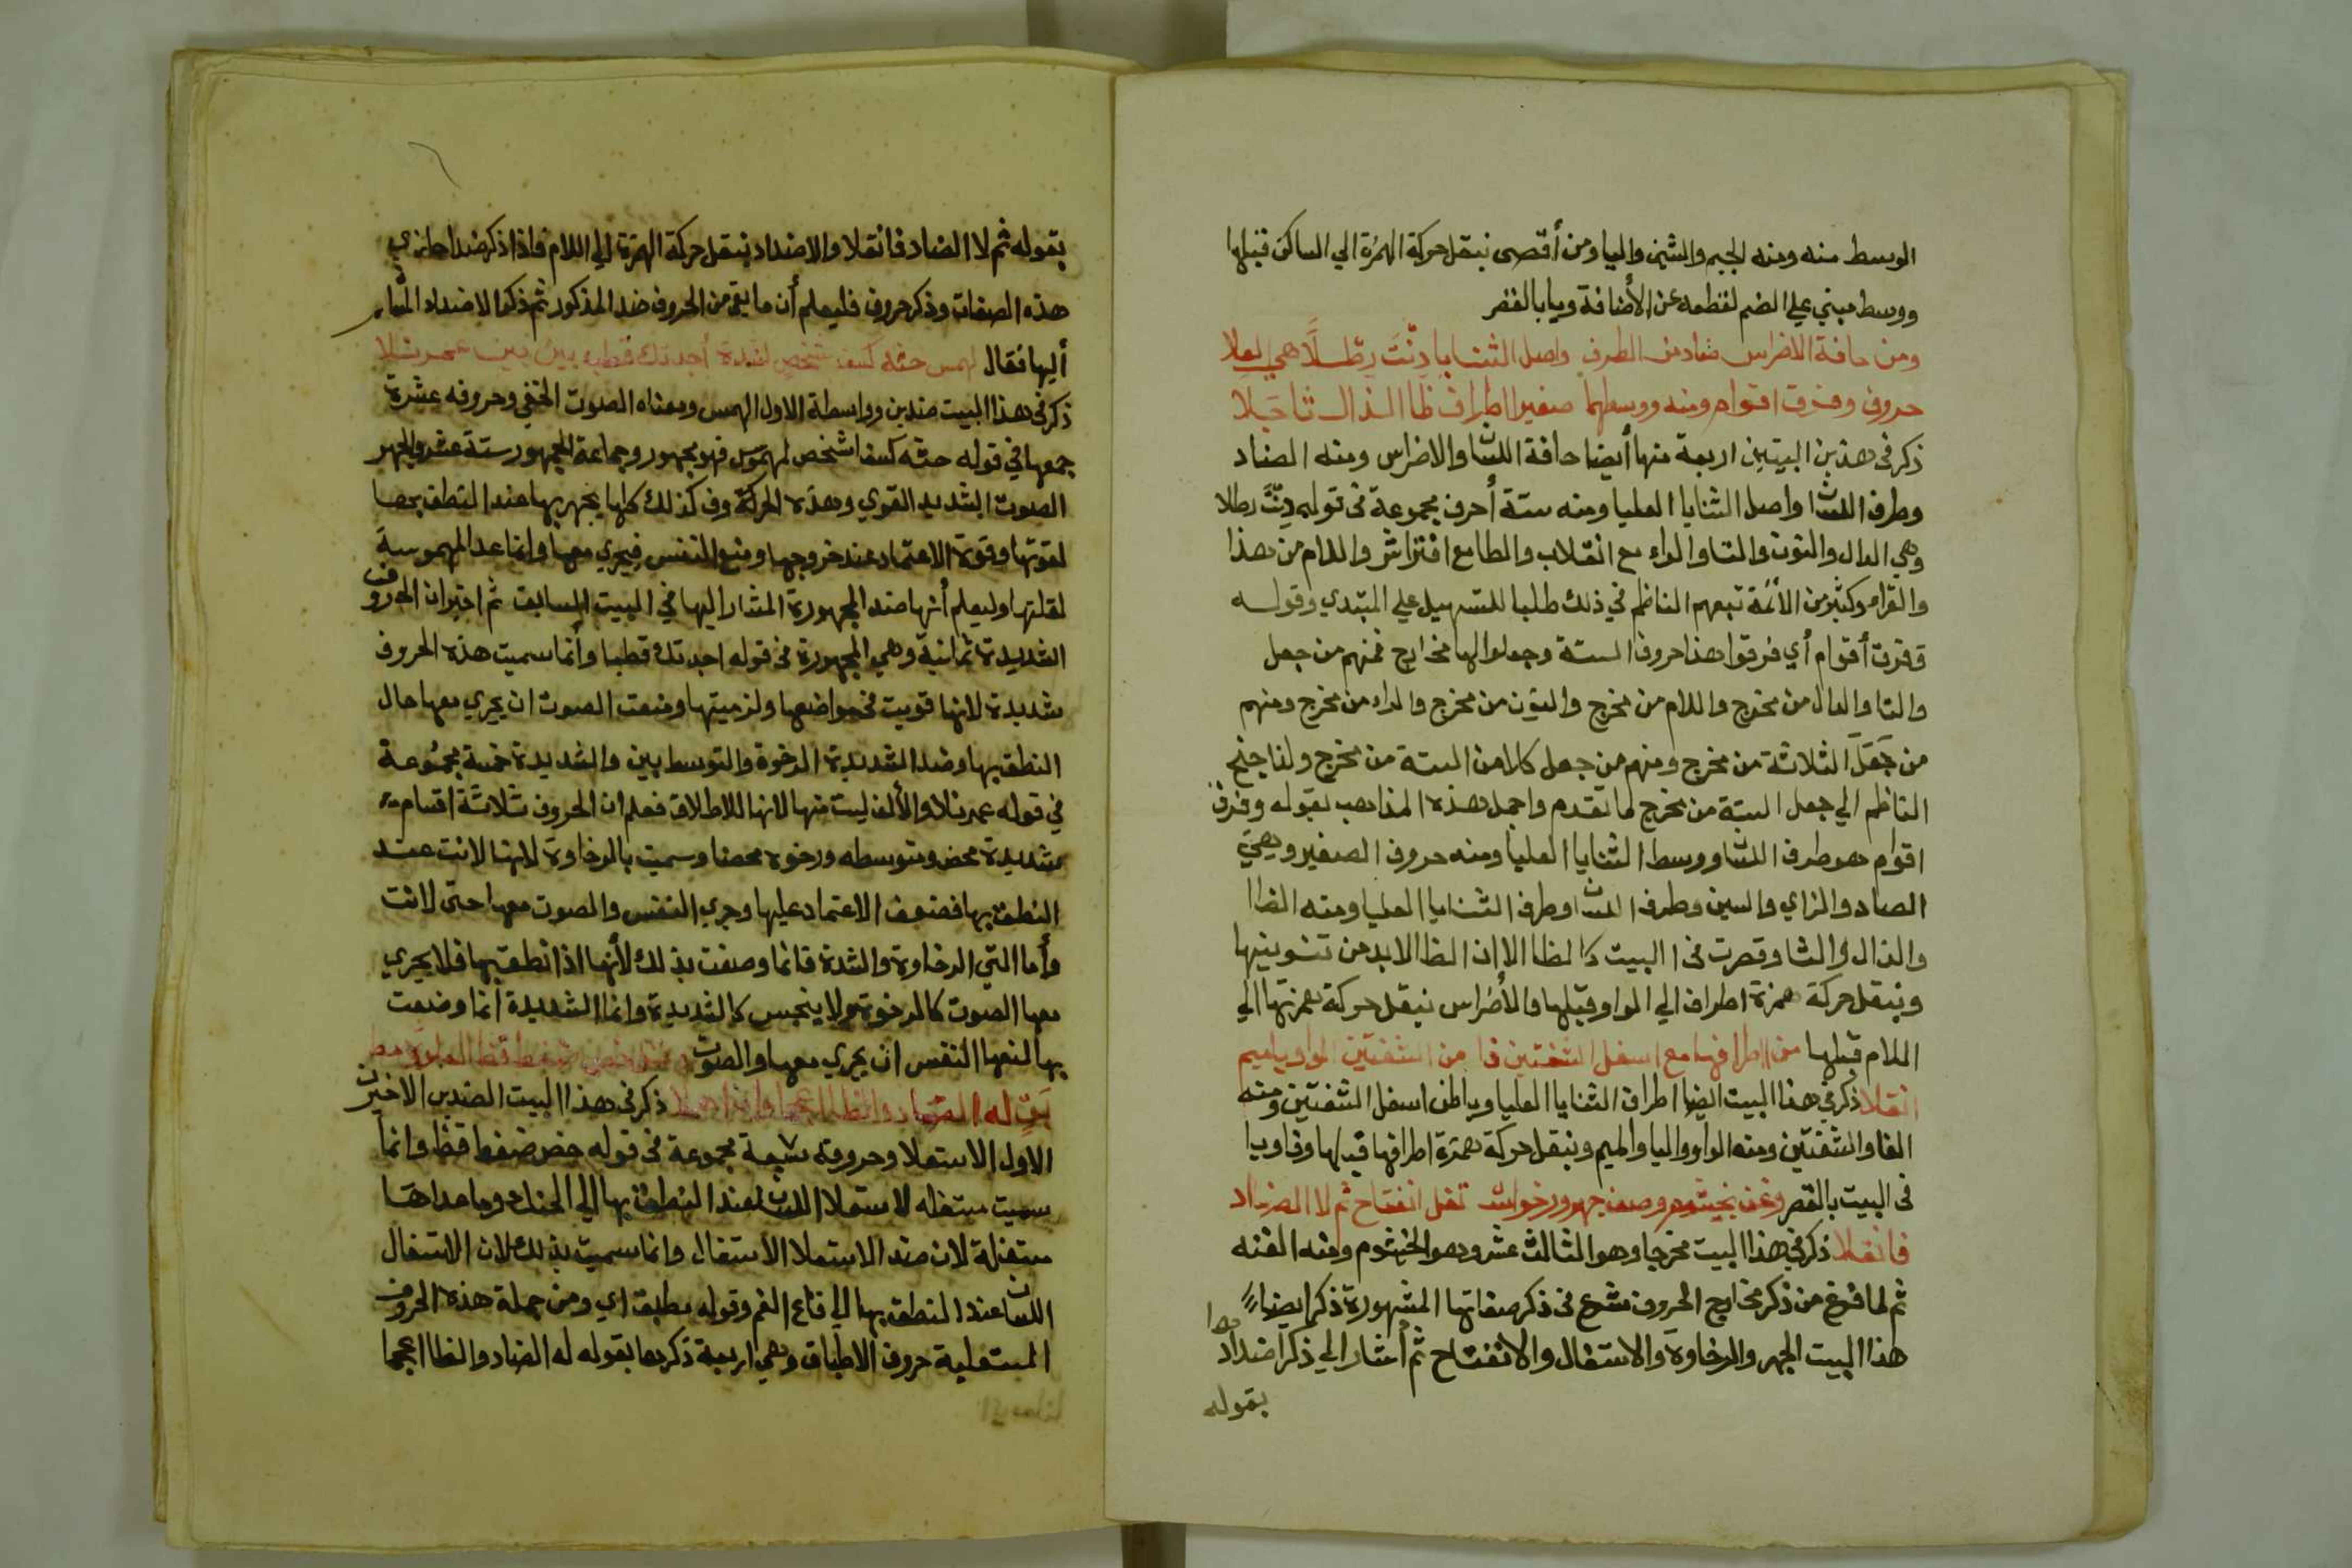 الوسط منه ومنه الجيم والشين واليا ومن أقصى بنقل حركة الهمزة الي الساكن قبلها
ووسط مبني علي الضم لقطعه عن الأضافة ويا بالقصر
ومن حافة الاضراس ضاد من الطرف واصل الثنايا دِنْتَ رطلًا هي لعلا
حروف وفرق اقوام ومنه ووسطها صفير اطراف ظا الذال ثا
ذكر في هذين البيتين اربعة منها أيضا حافة اللسان والاضراس ومنه الضاد
وطرف اللسان واصل الثنايا العليا ومنه ستة أحرف مجموعة في قوله دِنْتَ رطلا
وهي الدال والنون والتا والراء مع انقلاب والطا مع افتراش واللام من هذا
والقرا وكثير من الأئمة تبعهم الناظم في ذلك طلبا للتسهيل علي المبتدي وقوله
ففرق أقوام أي فرقوا هذا حروف الستة وجعلوا لها مخارج فمنهم من جعل
والتا والدال من مخرج واللام من مخرج والنون من مخرج والراء من مخرج ومنهم
من جَعَلَ الثلاثة من مخرج ومنهم من جعل كلا من الستة من مخرج ولنا جنح
الناظم الي جعل الستة من مخرج ما تقدم واجمل هذه المذاهب بقوله وفرق
اقوام هو طرف اللسان ووسط الثنايا العليا ومنه حروف الصفير وهي
الصاد والزاي والسين وطرف اللسان وطرف الثنايا العليا ومنه الظا
والذال والثا وقصرت في البيت كالظا الا ان الظا لا بد من تنوينها
وبنقل حركة همزة اطراف الي الواو قبلها والأضراس بنقل حركة همزتها الي
اللام قبلها من اطرافها مع اسفل الشفتين فا من الشفتين الواو يا ميم
انقلا ذكر في هذا البيت ايضا اطراف الثنايا العليا وباطن اسفل الشفتين ومنه
الفا والشفتين ومنه الواو والبا والميم وبنقل حركة همزة اطرافها قبلها وفا وبا
في البيت بالقصر وغن بخيشوم وصف جهر ورخوا تفل انفتاح ثم لا الضاد
فانقلا ذكر في هذا البيت مخرجا وهو الثالث عشر وهو الخيشوم ومنه الغنه
ثم لما فرغ من ذكر مخارج الحروف شرع في ذكر صفاتها المشهورة ذكر ايضا
هذا البيت الجهر والرخاوة والاستفال والانفتاح ثم أشار الي ذكر اضدادها
بقوله
بقوله ثم لا الضاد فانقلا والاضداد بنقل حركة الهمزة الي اللام فاذا ذكر ضدا من
هذه الصفات وذكر حروف فليعلم أن ما بقي من الحروف ضد المذكور ثم ذكر الاضداد المشار
أليها فقال لهمس حثه كسف شخص لشدة أجدتك قطب بين بين عمر نلا
ذكر في هذا البيت ضدين وواسطة الاول الهمس ومعناه الصوت الخفي وحروفه عشرة
جمعها في قوله حثه كسف شخص لمهموس فهو مجهور وجماعة المجهور ستة عشر والجهر
الصوت الشديد القوي وهذه الحركة وف كذلك كلها يجهر بها عند النطق بها
لقوتها وقوة الاعتماد عند خروجها ومنع النفس فيجري معها وانما عد المهموسة
لقلتها وليعلم أنها ضد المجهورة المشار اليها في البيت السابق ثم اخبر ان الحروف
الشديدة ثمانية وهي المجهورة في قوله اجدتك قطبا وأنما سميت هذه الحروف
شديدة لانها قويت في مواضعها ولزمتها ومنعت الصوت ان يجري معها حال
النطق بها وضد الشديدة الرخوة والتوسط بين والشديدة خمسة مجموعة
في قوله عمر نلا والألف ليست منها لانها للاطلاق فعلم ان الحروف ثلاثة اقسام
شديدة محض ومتوسطه ورخوه محضا وسميت بالرخاوة لانها لانت عند
النطق بها فضعف الاعتماد عليها وجري النفس والصوت معها حتى لانت
وأما التي الرخاوة والشدة فانما وصفت بذلك لأنها اذا نطق بها فلا يجري
معها الصوت كالرخوة ولا ينحبس كالشديدة وانما الشديدة أنما وصفت
بها لمنعها النفس ان يجري معها والصوت خص ضغط قظ العلو
له الضاد والظا اعجما وان اهملا ذكر في هذا البيت الضدين الاخيرين
الاول الاستعلا وحروفه سبعة مجموعة في قوله خص ضغط قظ وانما
سميت مستعله لاستعلا اللسان عند النطق بها الي الحنك وما عداها
مستفلة لان ضد الاستعلا الأستفال وانما سميت بذلك لان الاستفال
اللسان عند النطق بها الي قاع الفم وقوله مطبق اي ومن جملة هذه الحروف
المستعلية حروف الاطباق وهي اربعة ذكرها بقوله له الضاد والظا اعجما